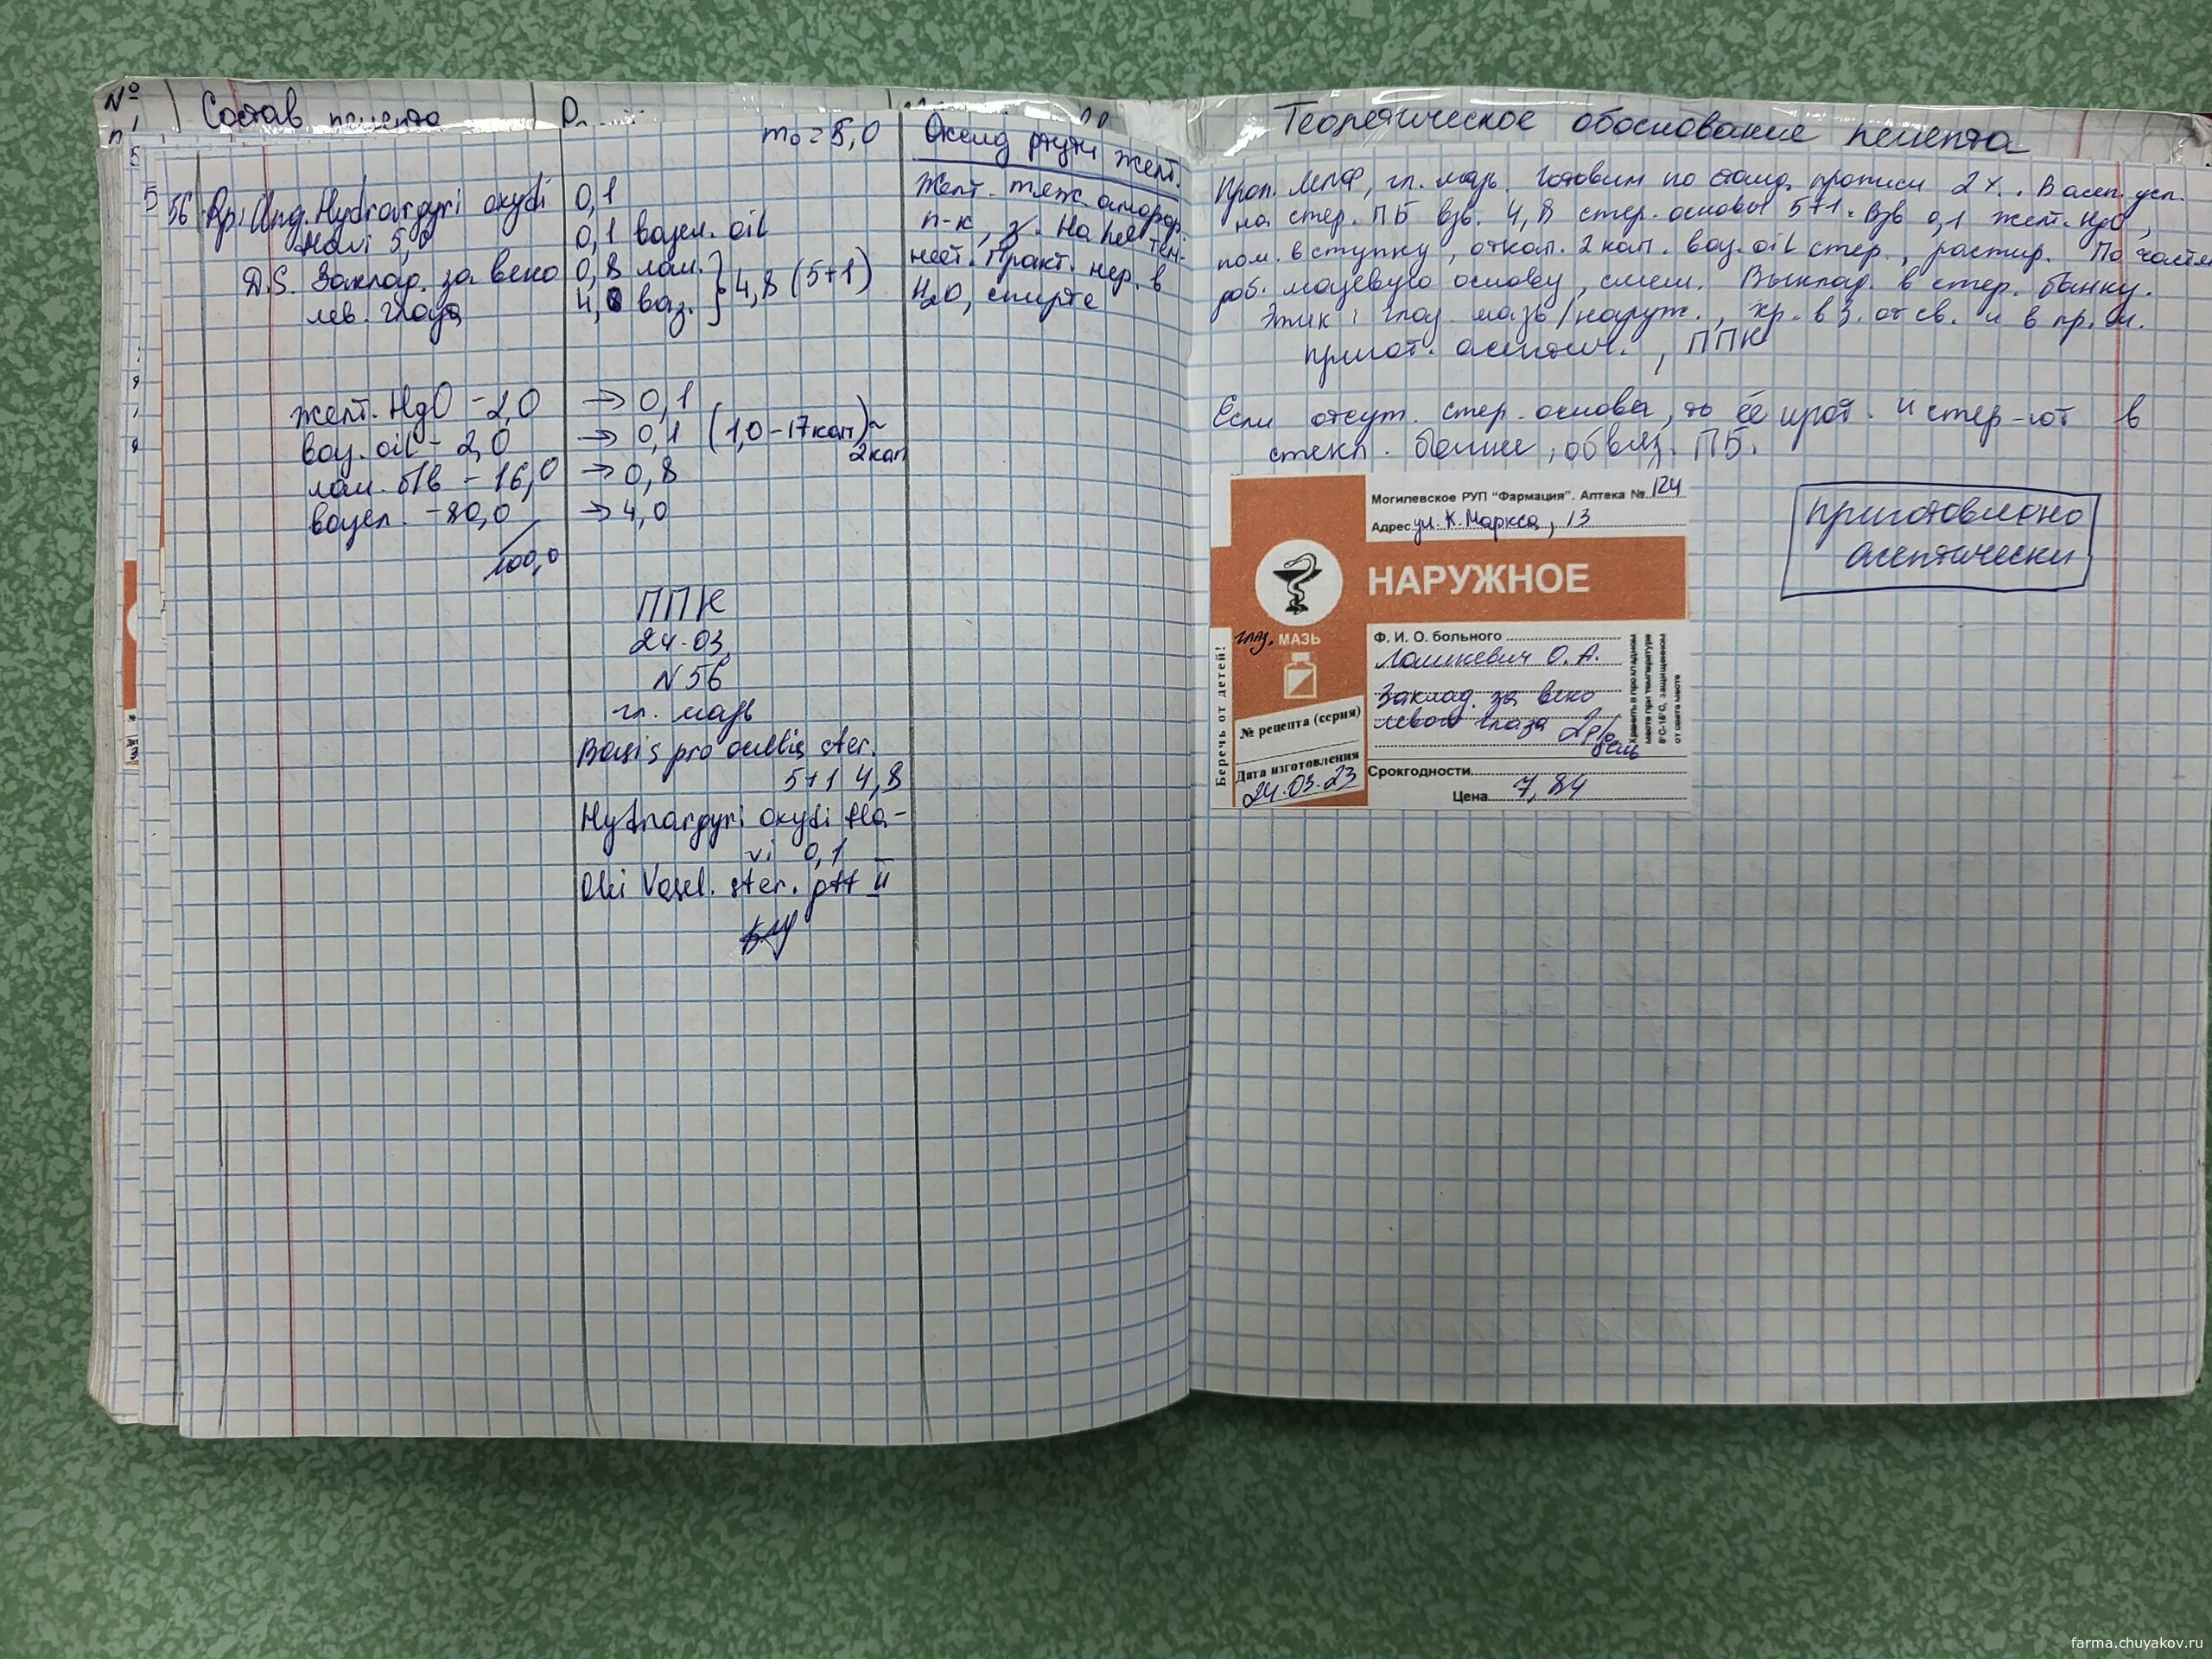 №
п
Состав рецепта
5
5
m₀ = 5,0
56 Rp: Ung. Hydrargyri oxydi
flavi 5,0
D.S. Заклад. за веко
лев. глаза
0,1
0,1 вазел. oil
0,8 лан. } 4,8 (5+1)
4,0 ваз.
желт. HgO - 2,0 → 0,1
ваз. oil - 2,0 → 0,1 (1,0 - 17 кап) ~
2 кап
лан. б/в - 16,0 → 0,8
вазел. - 80,0 → 4,0
100,0
ППК
24.03.
N 56
гл. мазь
Basis pro oculis ster.
5+1 4,8
Hydrargyri oxydi fla-
vi 0,1
Olei Vasel. ster. gtt II
Оксид ртути желт.
Желт. тяж. аморф.
п-к, На свете тем-
неет. Практ. нер. в
H₂O, спирте
Теоретическое обоснование рецепта
Проп. МЛФ, гл. мазь. Готовим по станд. прописи 2%. В асеп. усл.
на стер. ПБ взв. 4,8 стер. основы 5+1. Взв 0,1 желт. HgO,
пом. в ступку, откап. 2 кап. ваз. oil стер., растир. По частям
доб. мазевую основу, смеш. Выклад. в стер. банку.
Этик: глаз. мазь/наруж., хр. в з. от св. и в пр. м.
пригот. асептич., ППК
Если отсут. стер. основа, то её и стер-ют в
стекл. банке, обвяз. ПБ.
приготовлено
асептически
Могилевское РУП “Фармация”. Аптека № 124
Адрес ул. К. Маркса, 13
НАРУЖНОЕ
глаз. МАЗЬ
Беречь от детей!
№ рецепта (серия)
Дата изготовления
24.03.23
Ф. И. О. больного
О. А.
Заклад. за веко
левого глаза 2р/
день
Срок годности
Цена 7,84
Хранить в прохладном
месте при температуре
8°С-15°С, защищенном
от света месте
farma.chuyakov.ru